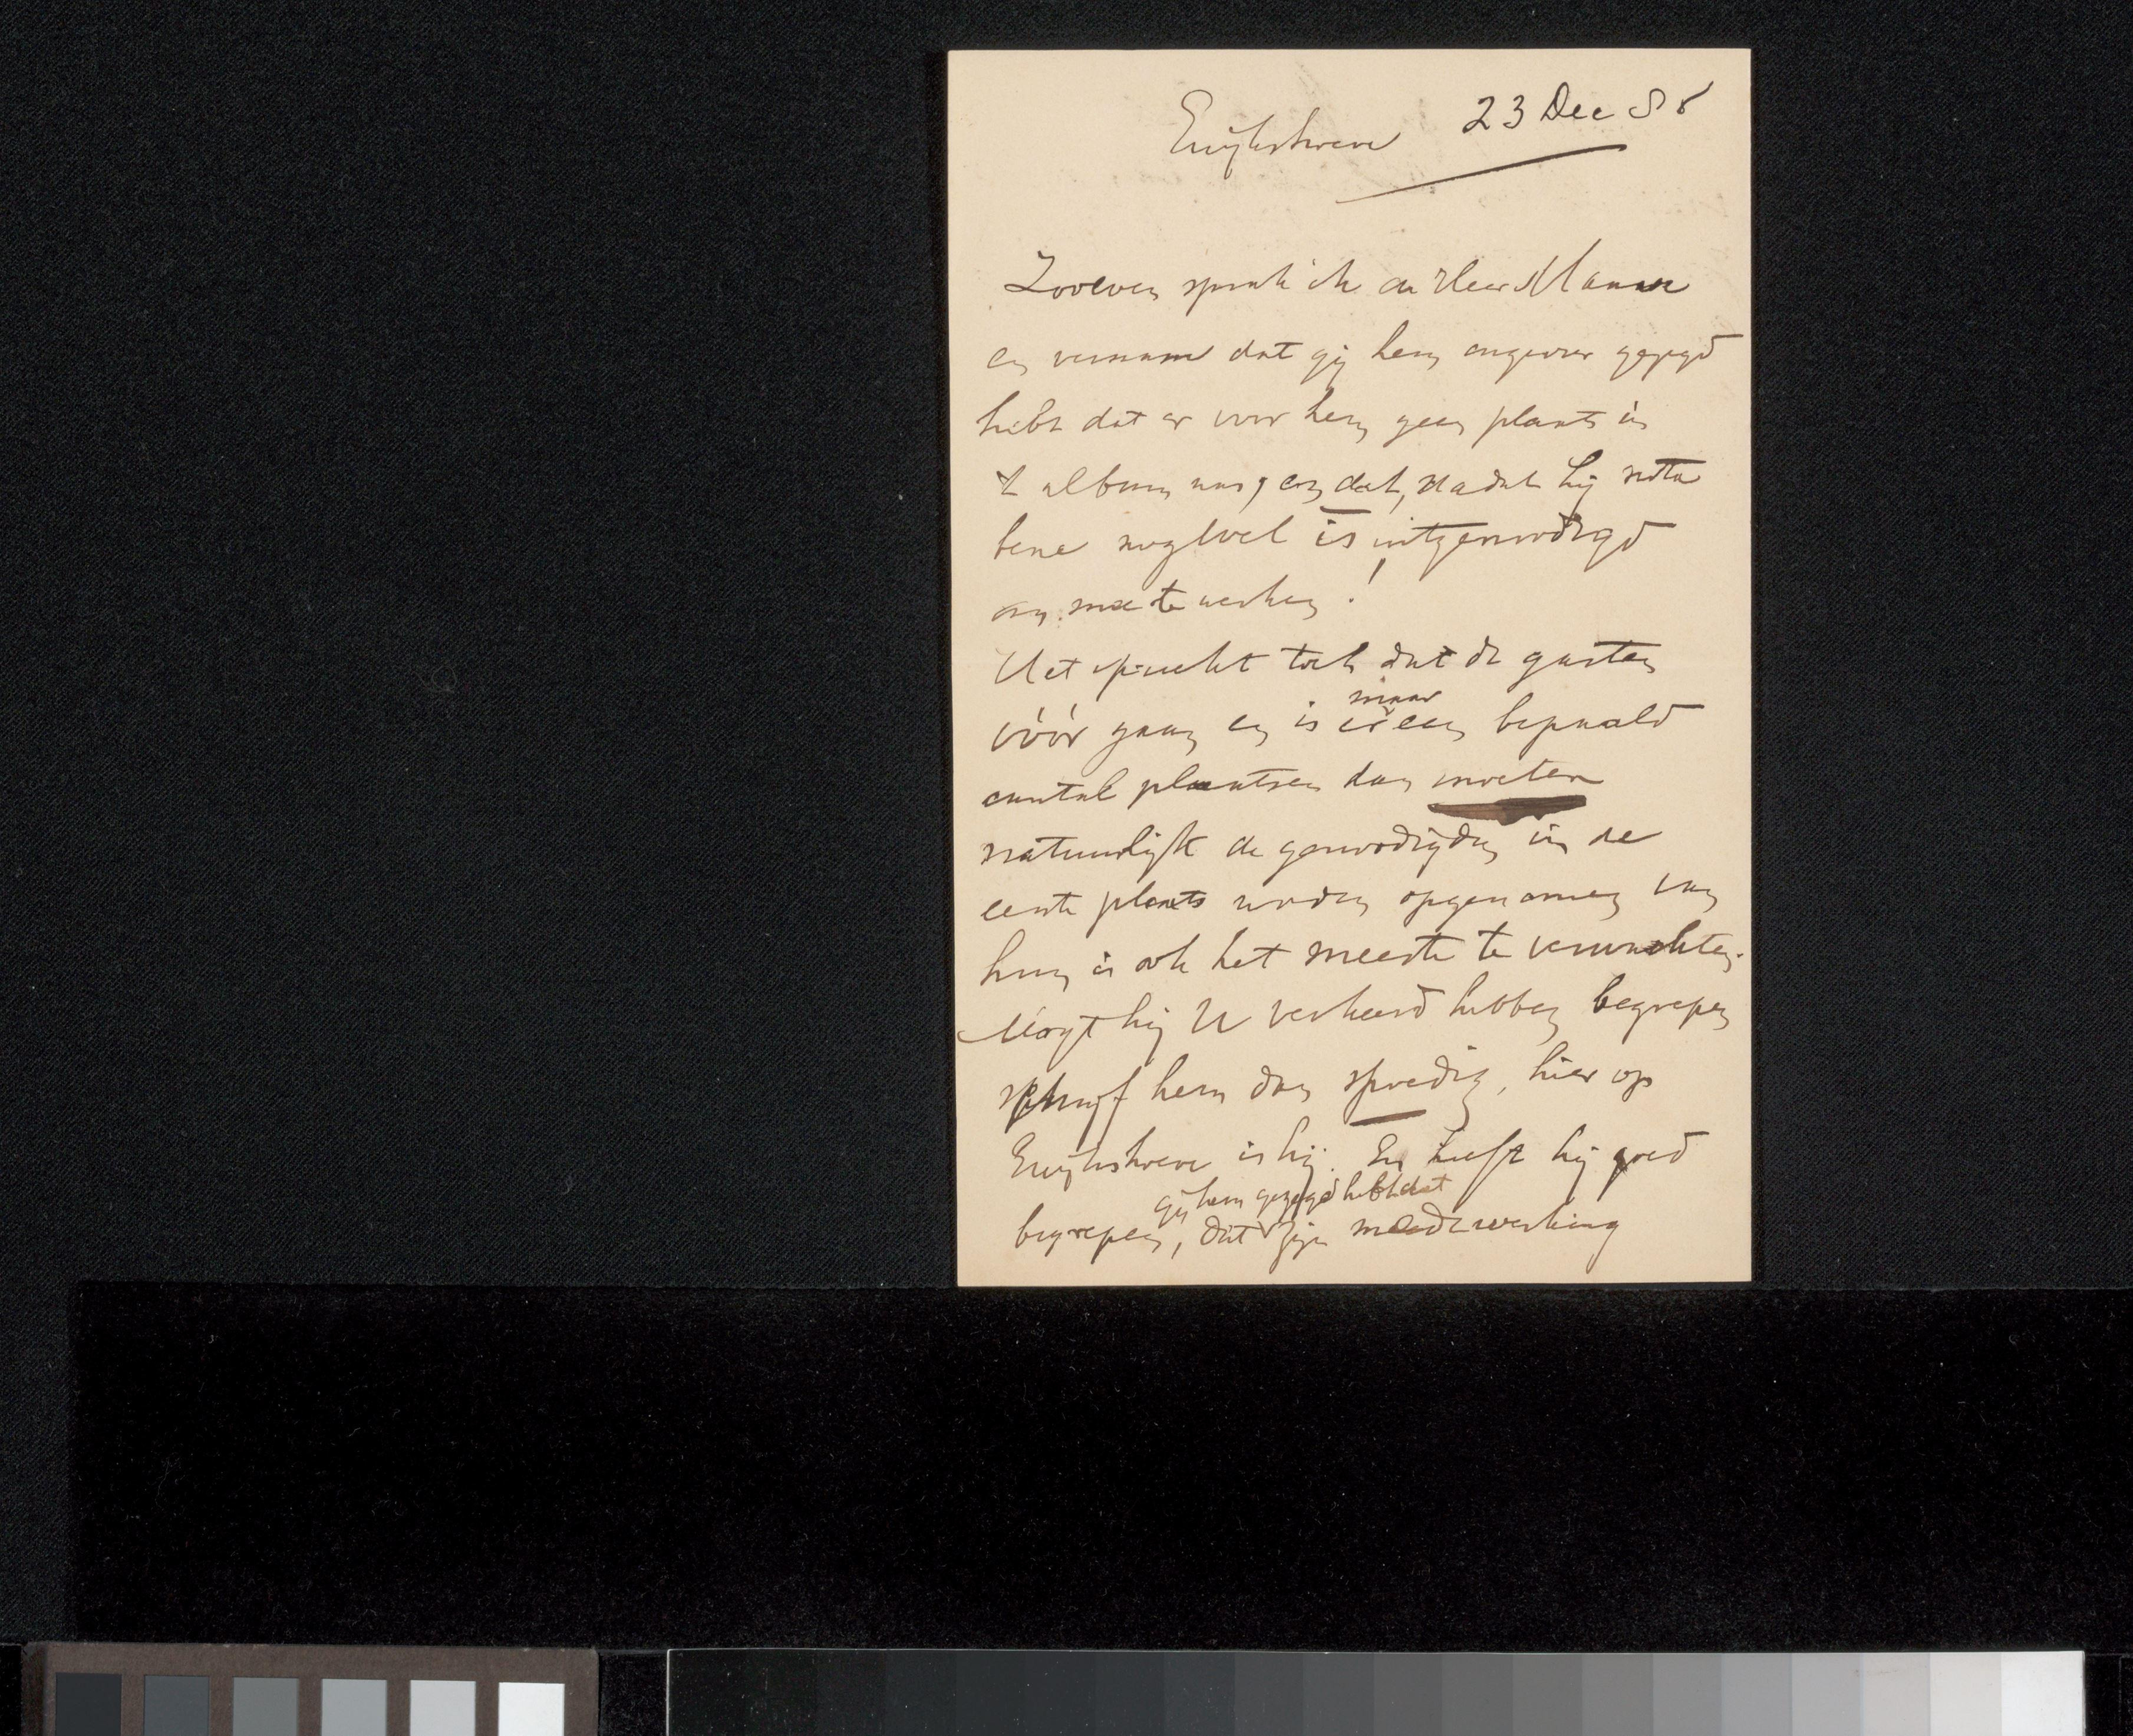 Ewijkshoeve 23 Dec 88
Zooeven sprak ik de Heer Mauve
en vernam dat gij hem ongeveer gezegd
hebt dat er voor hem geen plaats in
't album was, en dat, nadat hij nota
bene nog wel is uitgenoodigd
om mee te werken!
Het spreekt toch dat de gasten
vóór gaan en is er maar een bepaald
aantal plaatsen dan moeten
natuurlijk de genoodigden in de
eerste plaats worden opgenomen van
hun is ook het meeste te verwachten.
Mogt hij U verkeerd hebben begrepen
schrijf hem dan spoedig, hier op
Ewijkshoeve is hij. En heeft hij goed
begrepen, dat gij hem gezegd hebt dat zijn medewerking